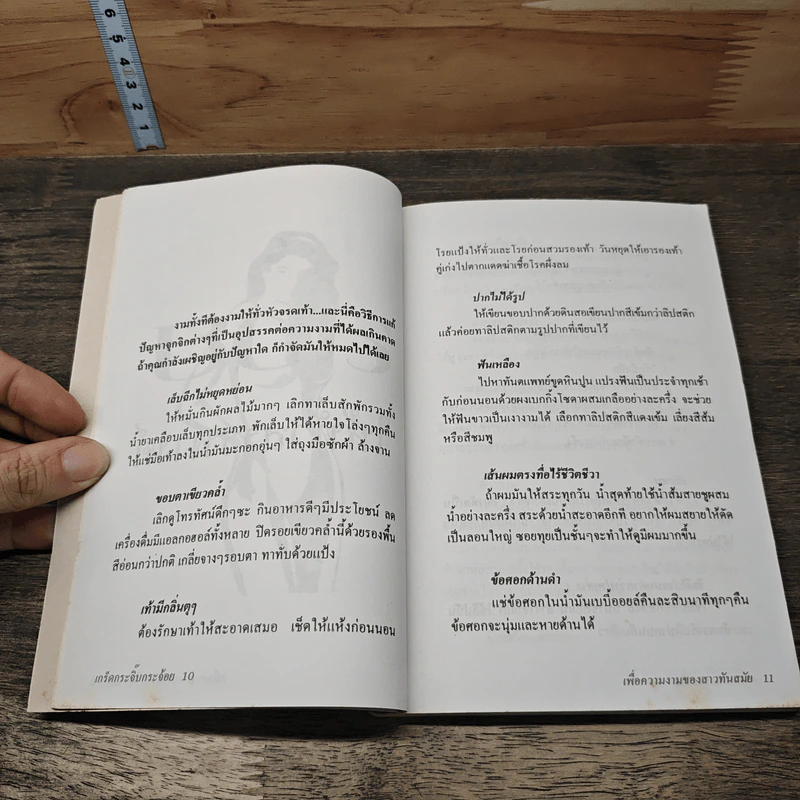 6 5 4 3 2 1
งามทั้งทีต้องงามให้ทั่วหัวจรดเท้า...และนี่คือวิธีการแก้
ปัญหาจุกจิกต่างๆที่เป็นอุปสรรคต่อความงามที่ได้ผลเกินคาด
ถ้าคุณกำลังเผชิญอยู่กับปัญหาใด ก็กำจัดมันให้หมดไปได้เลย
เล็บฉีกไม่หยุดหย่อน
ให้หมั่นกินผักผลไม้มากๆ เลิกทาเล็บสักพักรวมทั้ง
น้ำยาเคลือบเล็บทุกประเภท พักเล็บให้ได้หายใจโล่งๆทุกคืน
ให้แช่มือเท้าลงในน้ำมันมะกอกอุ่นๆ ใส่ถุงมือซักผ้า ล้างจาน
ขอบตาเขียวคล้ำ
เลิกดูโทรทัศน์ดึกๆซะ กินอาหารดีๆมีประโยชน์ ลด
เครื่องดื่มมีแอลกอฮอล์ทั้งหลาย ปิดรอยเขียวคล้ำนี้ด้วยรองพื้น
สีอ่อนกว่าปกติ เกลี่ยจางๆรอบตา ทาทับด้วยแป้ง
เท้ามีกลิ่นตุๆ
ต้องรักษาเท้าให้สะอาดเสมอ เช็ดให้แห้งก่อนนอน
เกร็ดกระจิ๊บกระจ้อย 10
โรยแป้งให้ทั่วและโรยก่อนสวมรองเท้า วันหยุดให้เอารองเท้า
คู่เก่งไปตากแดดฆ่าเชื้อโรคผึ่งลม
ปากไม่ได้รูป
ให้เขียนขอบปากด้วยดินสอเขียนปากสีเข้มกว่าลิปสติก
แล้วค่อยทาลิปสติกตามรูปปากที่เขียนไว้
ฟันเหลือง
ไปหาทันตแพทย์ขูดหินปูน แปรงฟันเป็นประจำทุกเช้า
กับก่อนนอนด้วยผงเบกกิ้งโซดาผสมเกลืออย่างละครึ่ง จะช่วย
ให้ฟันขาวเป็นเงางามได้ เลือกทาลิปสติกสีแดงเข้ม เลี่ยงสีส้ม
หรือสีชมพู
เส้นผมตรงทื่อไร้ชีวิตชีวา
ถ้าผมมันให้สระทุกวัน น้ำสุดท้ายใช้น้ำส้มสายชูผสม
น้ำอย่างละครึ่ง สระด้วยน้ำสะอาดอีกที อยากให้ผมสยายให้ดัด
เป็นลอนใหญ่ ซอยทุยเป็นชั้นๆจะทำให้ดูมีผมมากขึ้น
ข้อศอกด้านดำ
แช่ข้อศอกในน้ำมันเบบี้ออยล์คืนละสิบนาทีทุกๆคืน
ข้อศอกจะนุ่มและหายด้านได้
เพื่อความงามของสาวทันสมัย 11